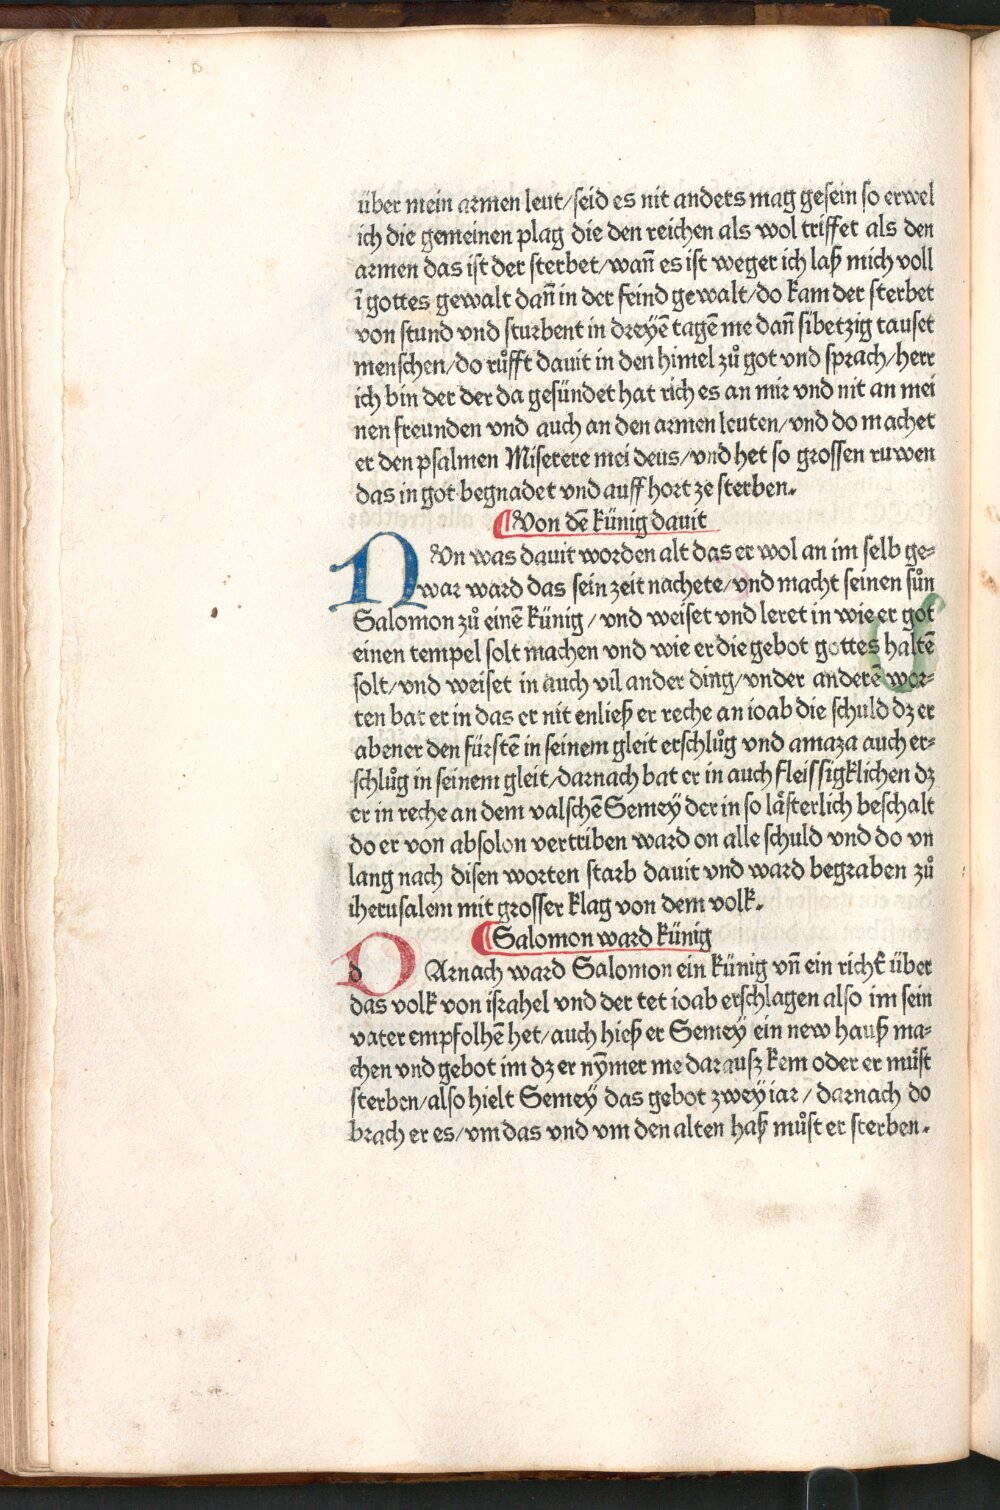 über mein armen leut/seid es nit anders mag gesein so erwel
ich die gemeinen plag die den reichen als wol triffet als den
armen das ist der sterbet/wañ es ist weger ich laß mich voll
ī gottes gewalt dañ in der feind gewalt/do kam der sterbet
von stund vnd sturbent in dreyē tagē me dañ sibetzig tauset
menschen/do růfft dauit in den himel zů got vnd sprach/herr
ich bin der der da gesündet hat rich es an mir vnd nit an mei
nen freunden vnd auch an den armen leuten/vnd do machet
er den psalmen Miserere mei deus/vnd het so grossen ruwen
das in got begnadet vnd auff hort ze sterben.
¶Von dē künig dauit
NVn was dauit worden alt das er wol an im selb ge⸗
war ward das sein zeit nachete/vnd macht seinen sůn
Salomon zů einē künig/vnd weiset vnd leret in wie er got
einen tempel solt machen vnd wie er die gebot gottes haltē
solt/vnd weiset in auch vil ander ding/vnder anderē wor⸗
ten bat er in das er nit enließ er reche an ioab die schuld dz er
abener den fürstē in seinem gleit erschlůg vnd amaza auch er⸗
schlůg in seinem gleit/darnach bat er in auch fleissigklichen dz
er in reche an dem valschē Semey der in so lästerlich beschalt
do er von absolon vertriben ward on alle schuld vnd do vn
lang nach disen worten starb dauit vnd ward begraben zů
iherusalem mit grosser klag von dem volk.
¶Salomon ward künig
DArnach ward Salomon ein künig vñ ein richt̄ über
das volk von israhel vnd der tet ioab erschlagen also im sein
vater empfolhē het/auch hieß er Semey ein new hauß ma⸗
chen vnd gebot im dz er nȳmer me darausz kem oder er müst
sterben/also hielt Semey das gebot zwey iar/darnach do
brach er es/vm das vnd vm den alten haß můst er sterben.